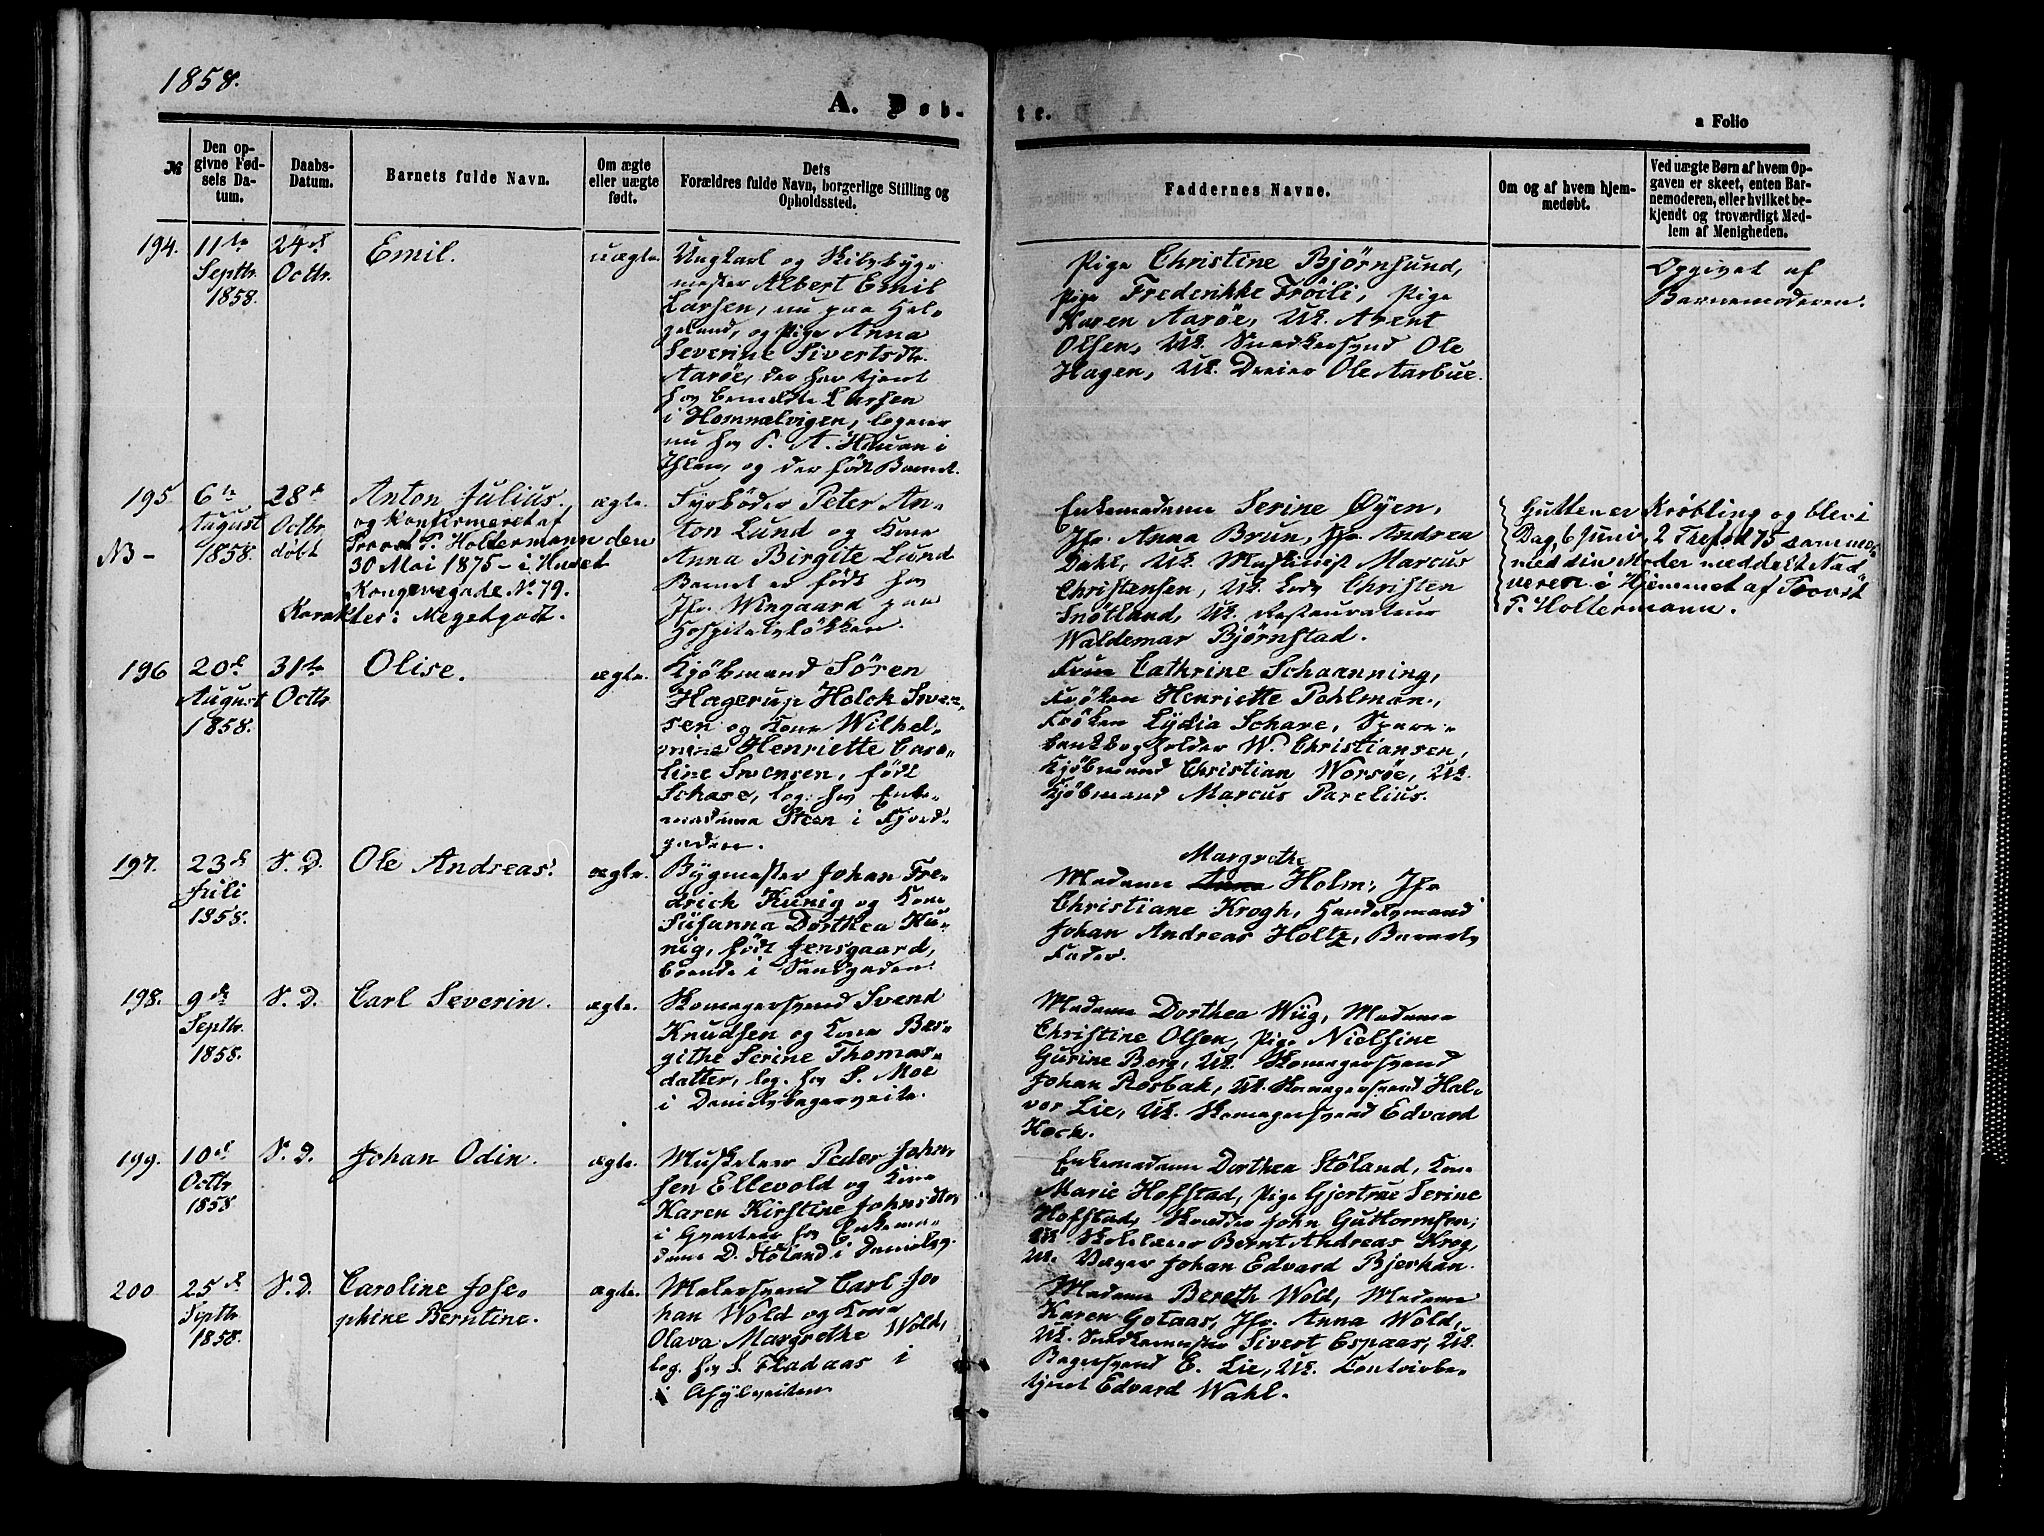 1858.
A. Døb-
te.
a Folio
№
Den op-
givne Fød-
sels Da-
tum.
Daabs-
Datum.
Barnets fulde Navn.
Om ægte
eller uægte
født.
Dets
Forældres fulde Navn, borgerlige Stilling og
Opholdssted.
Faddernes Navne.
Om og af hvem hjem-
medøbt.
Ved uægte Børn af hvem Op-
gaven er skeet, enten Bar-
nemoderen, eller hvilket be-
kjendt og troværdigt Med-
lem af Menigheden.
194.
11te
Septbr.
1858.
24d
Octbr.
Emil.
uægte.
Ungkarl og Skibsbyg-
mester Albert Emil
Larsen, nu paa Hel-
geland, og Pige Anna
Severine Sivertsdtr.
Aarøe, der har tjent
hos bemeldte Larsen
i Hommelvigen, logerer
nu hos P. A. Hauan i
Ihlen, og der født Barnet.
Pige Christine Bjørnsund,
Pige Frederikke Frøili, Pige
Karen Aarøe, Uk. Arent
Olsen, Uk. Snedkersvend Ole
Hagen, Uk. Dreier Ole Aarbue.
Opgivet af
Barnemoderen.
195
NB-
6te
August
1858.
28d
Octbr.
døbt
Anton Julius.
og Konfirmeret af
Provst T. Holtermann den
30 Mai 1875 - i Huset
Kongensgade No 79.
Karakter: Megetgodt.
ægte.
Fyrbøder Peter An-
ton Lund og Kone
Anna Birgite Lund
Barnet er født hos
Jfr. Wingaard paa
Hospitalsløkken.
Enkemadame Serine Øyen,
Jfr. Anna Brun, Jfr. Andrea
Dahl, Uk. Maskinist Marcus
Christensen, Uk. Lods Christen
Snøtland, Uk. Restaurateur
Waldemar Bjørnstad.
Gutten er Krøbling og blev i
Dag, 6 Juni, 2 Trefod 75 sammen
med din Moder meddelt Nad
veren i Hjemmet af Provst
T. Holtermann.
196
20d
August
1858.
31te
Octbr
Olise.
ægte.
Kjøbmand Søren
Hagerup Holck Sven-
sen og Kone Wilhel-
mine Henriette Caro-
line Svensen, født
Schare, log. hos Enke-
madame Steen i Fjord-
gaden.
Frue Cathrine Schaanning,
Frøken Henriette Pohlman,
Frøken Lydia Schare, Spare-
banksbogholder W. Christiansen,
Kjøbmand Christian Worsøe, Uk.
Kjøbmand Marcus Parelius.
197.
23d
Juli
1858.
S. D.
Ole Andreas.
ægte.
Bygmester Johan Fre-
drich Kunig og Kone
Susanna Dorthea Ku-
nig, født Jensgaard,
boende i Sandgaden.
Margrethe
Madame Anna Holm, Jfr
Christiane Krogh, Handelsmand
Johan Andreas Holtz, Barnets
Fader.
198.
9de
Septbr.
1858.
S. D.
Carl Severin.
ægte.
Skomagersvend Svend
Knudsen og Kone Ber-
githe Serine Thomas-
datter, log. hos S. Moe
i Danielsbagerveite.
Madame Dorthea Wug, Madame
Christine Olsen, Pige Nielsine
Gurine Berg, Uk. Skomagersvend
Johan Rosbak, Uk. Skomagersvend Hal-
vor Lie, Uk. Skomagersvend Edvard
Koch.
199.
10d
Octbr
1858
S. D.
Johan Odin.
ægte.
Musketeer Peder John-
sen Ellevold og Kone
Karen Kirstine Johnsdtr.
i Qvarteer hos Enkema-
dame D. Støland i Danielsg.
Enkemadame Dorthea Støland, Kone
Marie Hofstad, Pige Gjertrue Serine
Hofstad, Skrædder John Guttormsen,
Uk. Skolelærer Bernt Andreas Krog,
Uk. Væger Johan Edvard Bjerkan.
200
25d
Septbr
1858.
S. D.
Caroline Jose-
phine Berntine.
ægte.
Malersvend Carl Jo-
han Wold og Kone
Olava Margrethe Wold,
log. hos S. Fladaas i
i Asylveiten
Madame Bereth Wold, Madame
Karen Golaas, Jfr. Anna Wold,
Uk. Snedkermester Sivert Espaas, Uk.
Bagersvend E. Lie, Uk. Contoirbe-
tjent Edvard Wahl.